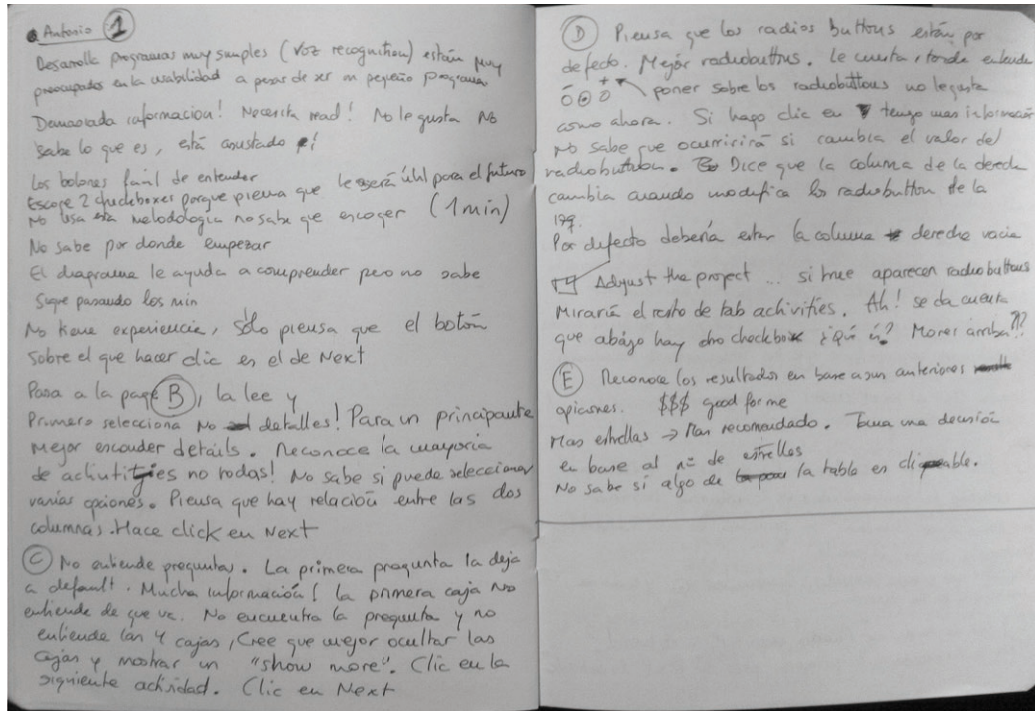 Antonio 1
Desarrolla programas muy simples (voz recognition) están muy
preocupados en la usabilidad a pesar de ser un pequeño programa
Demasiada informacion! Necesita read! No le gusta No
sabe lo que es, está asustado !
Los botones facil de entender
Escoge 2 checkboxes porque piensa que le será útil para el futuro
No usa esta metodología no sabe que escoger (1 min)
No sabe por donde empezar
El diagrama le ayuda a comprender pero no sabe
Sigue pasando los min
No tiene experiencia, sólo piensa que el botón
sobre el que hacer clic es el de Next
Pasa a la page B, la lee y
Primero selecciona No detalles! Para un principante
mejor esconder details. Reconoce la mayoria
de activities no todas! No sabe si puede seleccionar
varias opciones. Piensa que hay relación entre las dos
columnas. Hace click en Next
C No entiende preguntas. La primera pregunta la deja
a default. Mucha información! la primera caja no
entiende de que va. No encuentra la pregunta y no
entiende las 4 cajas, Cree que mejor ocultar las
cajas y mostrar un "show more". Clic en la
siguiente actividad. Clic en Next
D Piensa que los radios buttons están por
defecto. Mejor radiobuttons. Le cuesta, tarda entende
- + poner sobre los radiobuttons no le gusta
como ahora. Si hago clic en tengo mas información
No sabe que ocurrirá si cambia el valor del
radiobutton. Dice que la columna de la derecha
cambia cuando modifica los radiobutton de la
izq.
Por defecto debería estar la columna derecha vacia
Adjust the project ... si true aparecen radiobuttons
Miraría el resto de tab activities. Ah! se da cuenta
que abajo hay otro checkbox ¿Qué es? Mover arriba??
E Reconoce los resultados en base a sus anteriores
opiciones. $$$ good for me
Mas estrellas → Plan recomendado. Toma una decisión
en base al nº de estrellas
No sabe si algo de la tabla es cliqueable.